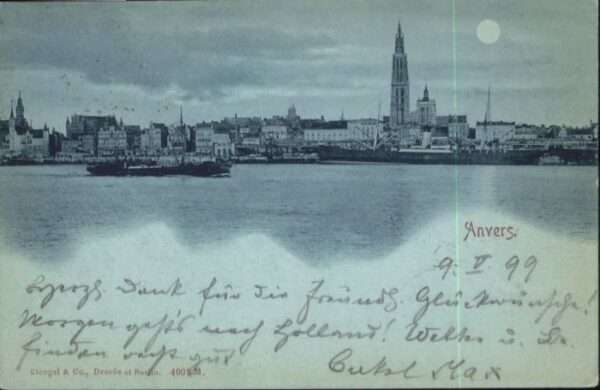 Anvers.
9. IV 99
Herzl. Dank für die freundl. Glückwünsche!
Morgen geht's nach Holland! Wetter u. Be-
finden recht gut
Onkel Max
Stengel & Co., Dresde et Berlin. 4008 M.